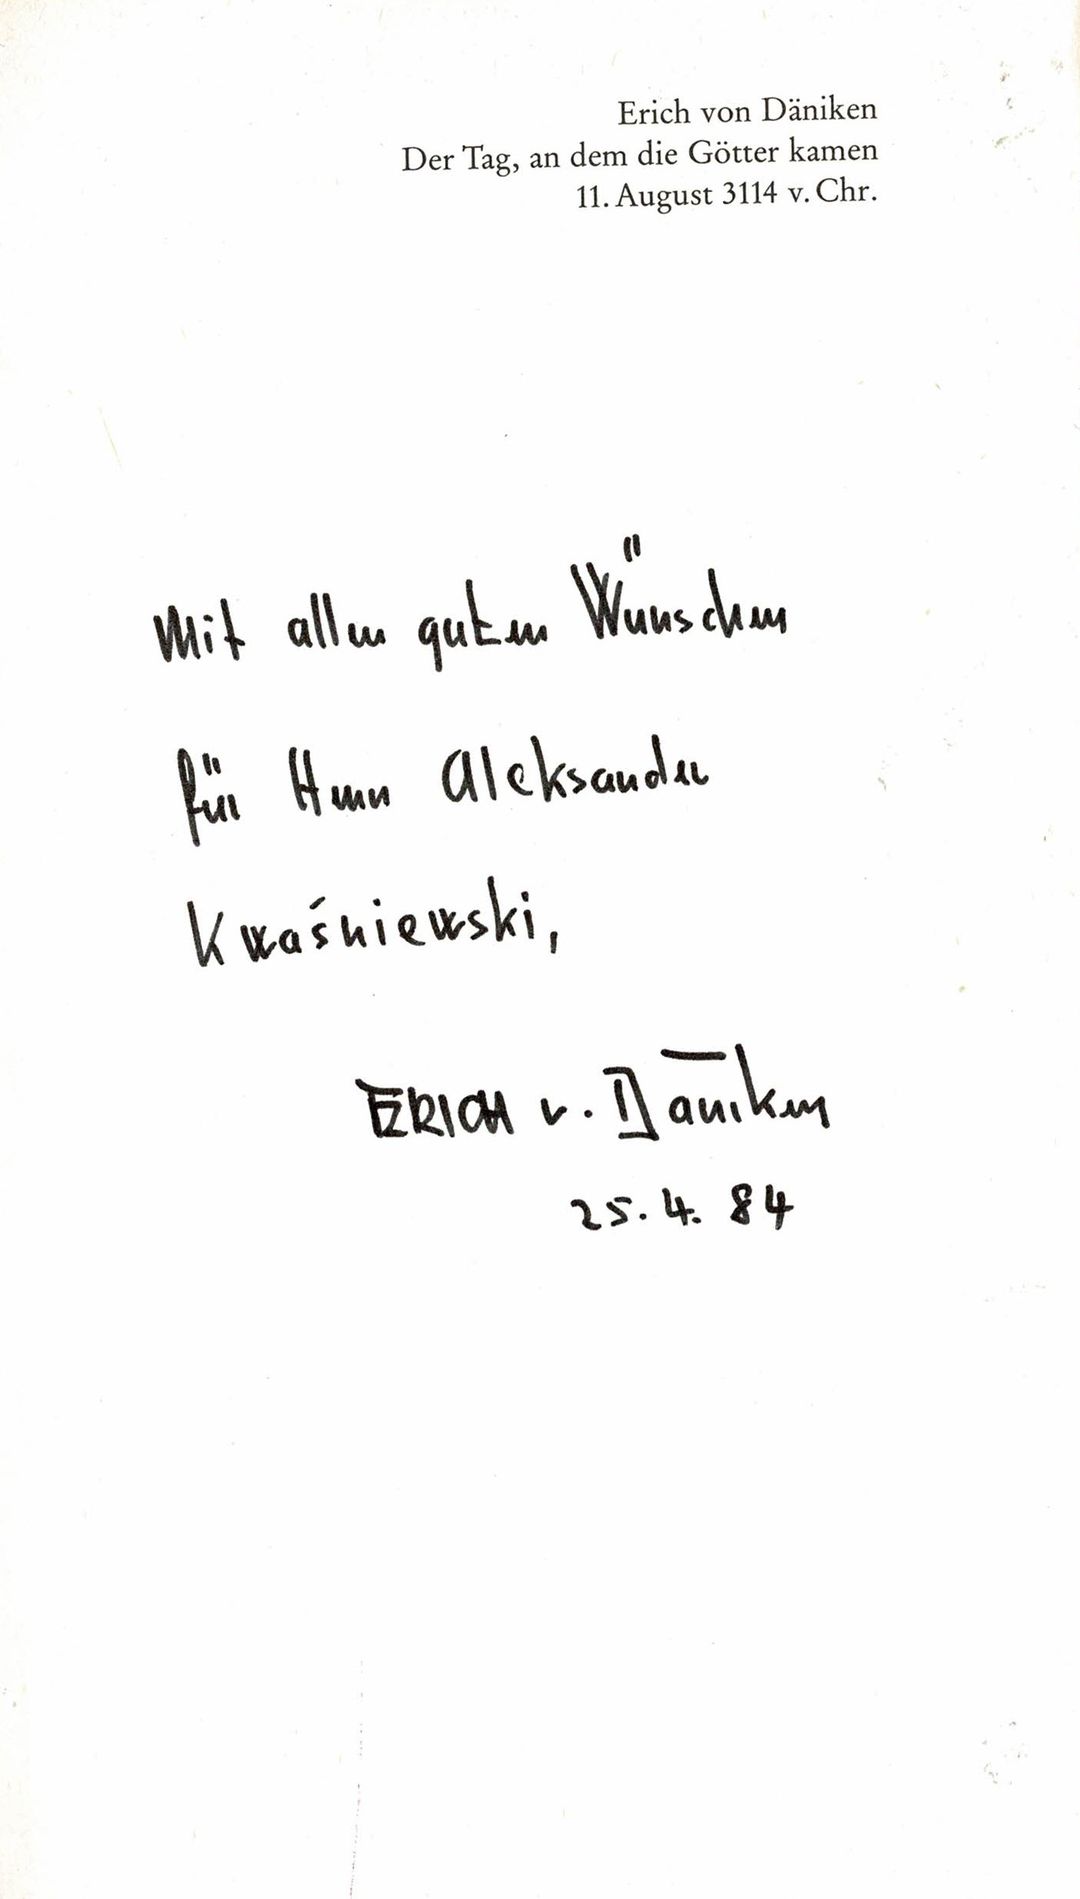 Erich von Däniken
Der Tag, an dem die Götter kamen
11. August 3114 v. Chr.
Mit allen guten Wünschen
für Herrn Aleksander
Kwaśniewski,
ERICH v. Däniken
25.4.84